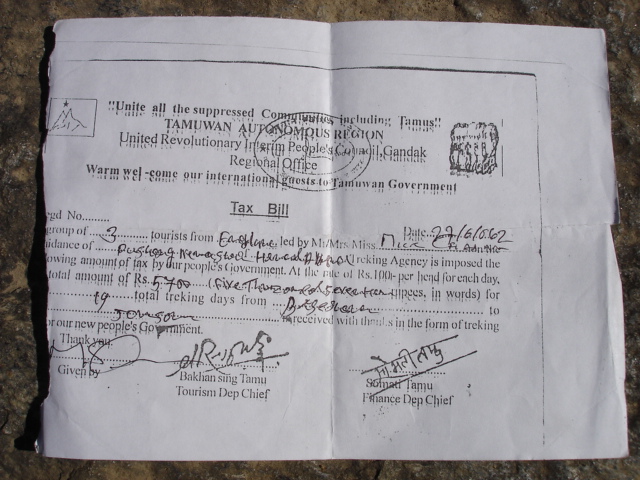 "Unite all the suppressed Communities including Tamus!!
TAMUWAN AUTONOMOUS REGION
United Revolutionary Interim People's Council, Gandak
Regional Office
Warm wel-come our international guests to Tamuwan Government
Tax Bill
gd No.........
Date
group of 3 tourists from England, led by Mr/Mrs. Miss.
idance of Treking Agency is imposed the
owing amount of tax by our people's Government. At the rate of Rs.100/- per head for each day,
total amount of Rs. 5700 (five Thousand seven rupees, in words) for
19 total treking days from to
Jomsom received with thanks in the form of treking
or our new people's Government.
Thank you.
Given by
Bakhan sing Tamu
Tourism Dep Chief
Somati Tamu
Finance Dep Chief